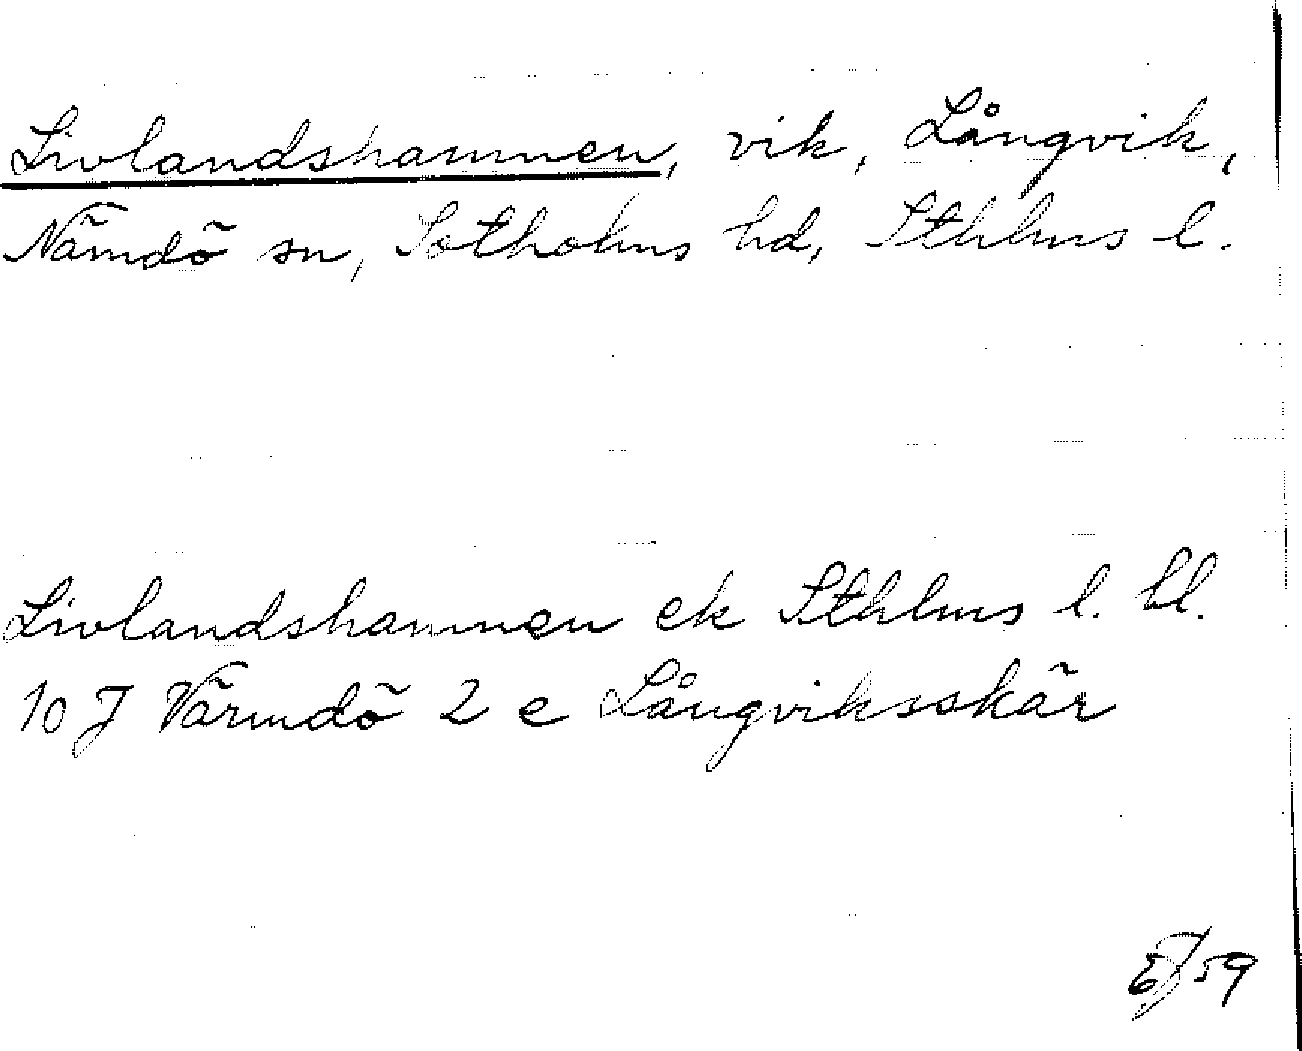 Livlandshamnen, vik, Långvik,
Nämdö sn, Sotholms hd, Sthlms l.
Livlandshamnen ek Sthlms l. bl.
10 J Värmdö 2 e Långviksskär
59